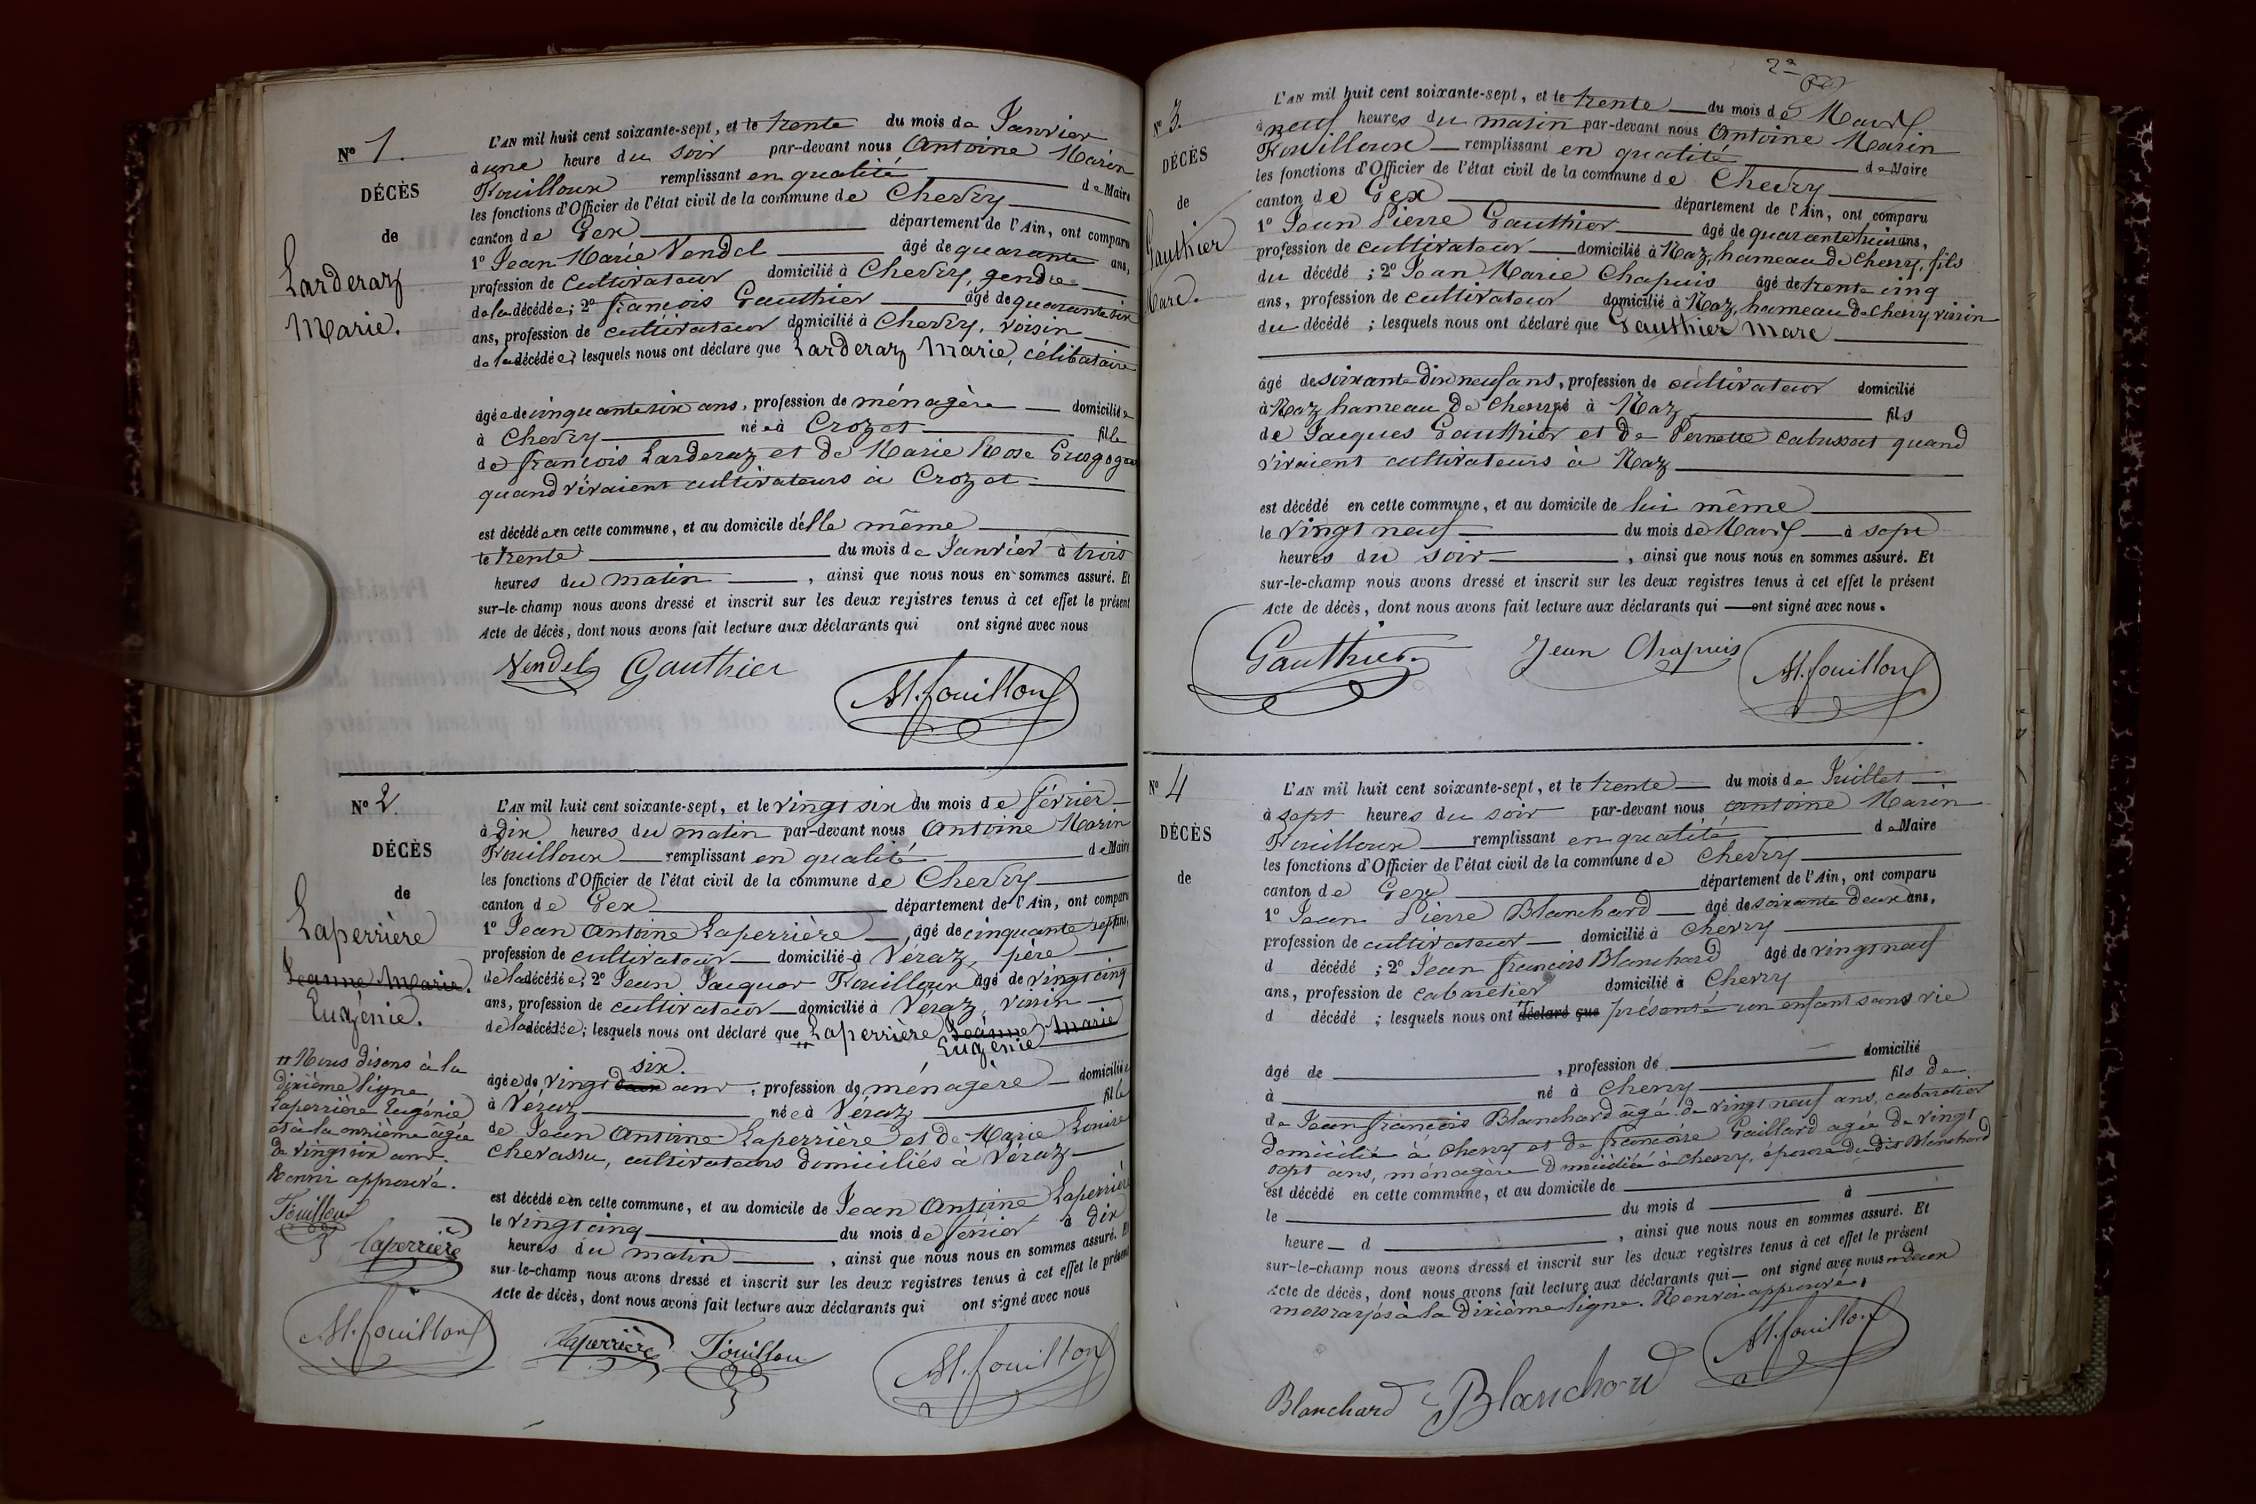 Nº 1.
DÉCÈS
de
Larderaz
Marie.
L'AN mil huit cent soixante-sept, et le trente du mois de Janvier
à une heure du soir par-devant nous Antoine Marin
Fouilloux remplissant en qualité de Maire
les fonctions d'Officier de l'état civil de la commune de Chevry
canton de Gex département de l'Ain, ont comparu
1º Jean Marie Vendel âgé de quarante ans,
profession de cultivateur domicilié à Chevry, gendre
de la décédée; 2º françois Gauthier âgé de quarante six
ans, profession de cultivateur domicilié à Chevry, voisin
de la décédée; lesquels nous ont déclaré que Larderaz Marie, célibataire
âgée de cinquante six ans, profession de ménagère domiciliée
à Chevry née à Crozet fille
de françois Larderaz et de Marie Rose
quand vivaient cultivateurs à Crozet
est décédée en cette commune, et au domicile d'elle même
le trente du mois de Janvier à trois
heures du matin, ainsi que nous nous en sommes assuré. Et
sur-le-champ nous avons dressé et inscrit sur les deux registres tenus à cet effet le présent
Acte de décès, dont nous avons fait lecture aux déclarants qui ont signé avec nous
Vendel Gauthier
AM. fouilloux
Nº 2.
DÉCÈS
de
Laperrière
Jeanne Marie.
Eugénie.
" Nous disons à la
dixième ligne
Laperrière Eugénie
et à la onzième âgée
de vingt six ans.
Renvoi approuvé.
Fouilloux
Laperrière
AM. fouilloux
L'AN mil huit cent soixante-sept, et le vingt six du mois de février
à dix heures du matin par-devant nous Antoine Marin
Fouilloux remplissant en qualité de Maire
les fonctions d'Officier de l'état civil de la commune de Chevry
canton de Gex département de l'Ain, ont comparu
1º Jean Antoine Laperrière, âgé de cinquante sept ans,
profession de cultivateur domicilié à Véraz, père
de la décédée; 2º Jean Jacques Fouilloux âgé de vingt cinq
ans, profession de cultivateur domicilié à Véraz, voisin
de la décédée; lesquels nous ont déclaré que Laperrière Jeanne Marie
" Eugénie
six.
âgée de vingt deux ans, profession de ménagère domiciliée
à Véraz née à Véraz fille
de Jean Antoine Laperrière et de Marie Louise
Chevassu, cultivateurs domiciliés à Véraz
est décédée en cette commune, et au domicile de Jean Antoine Laperrière
le vingt cinq du mois de février à dix
heures du matin, ainsi que nous nous en sommes assuré. Et
sur-le-champ nous avons dressé et inscrit sur les deux registres tenus à cet effet le présent
Acte de décès, dont nous avons fait lecture aux déclarants qui ont signé avec nous
Laperrière Fouilloux
AM. fouilloux
Nº 3.
DÉCÈS
de
Gauthier
Marc.
L'AN mil huit cent soixante-sept, et le trente du mois de Mars
à neuf heures du matin par-devant nous Antoine Marin
Fouilloux remplissant en qualité de Maire
les fonctions d'Officier de l'état civil de la commune de Chevry
canton de Gex département de l'Ain, ont comparu
1º Jean Pierre Gauthier âgé de quarante huit ans,
profession de cultivateur domicilié à Naz, hameau de Chevry, fils
du décédé; 2º Jean Marie Chapuis âgé de trente cinq
ans, profession de cultivateur domicilié à Naz, hameau de Chevry, voisin
du décédé; lesquels nous ont déclaré que Gauthier Marc
âgé de soixante dix neuf ans, profession de cultivateur domicilié
à Naz hameau de Chevry né à Naz fils
de Jacques Gauthier et de Pernette Cabussat quand
vivaient cultivateurs à Naz
est décédé en cette commune, et au domicile de lui même
le vingt neuf du mois de Mars à sept
heures du soir, ainsi que nous nous en sommes assuré. Et
sur-le-champ nous avons dressé et inscrit sur les deux registres tenus à cet effet le présent
Acte de décès, dont nous avons fait lecture aux déclarants qui ont signé avec nous.
Gauthier Jean Chapuis AM. fouilloux
Nº 4
DÉCÈS
de
L'AN mil huit cent soixante-sept, et le trente du mois de Juillet
à sept heures du soir par-devant nous Antoine Marin
Fouilloux remplissant en qualité de Maire
les fonctions d'Officier de l'état civil de la commune de Chevry
canton de Gex département de l'Ain, ont comparu
1º Jean Pierre Blanchard âgé de soixante deux ans,
profession de cultivateur domicilié à Chevry
d décédé; 2º Jean françois Blanchard âgé de vingt neuf
ans, profession de cabaretier domicilié à Chevry
d décédé; lesquels nous ont déclaré que présenté un enfant sans vie
âgé de, profession de domicilié
à né à Chevry fils de
de Jean françois Blanchard âgé de vingt neuf ans, cabaretier
domicilié à Chevry et de françoise Gaillard agée de vingt
sept ans, ménagère domiciliée à Chevry, épouse du dit Blanchard
est décédé en cette commune, et au domicile de
le du mois d à
heure d, ainsi que nous nous en sommes assuré. Et
sur-le-champ nous avons dressé et inscrit sur les deux registres tenus à cet effet le présent
Acte de décès, dont nous avons fait lecture aux déclarants qui ont signé avec nous deux
mots rayés à la dixième ligne. Renvoi approuvé.
Blanchard Blanchard AM. fouilloux